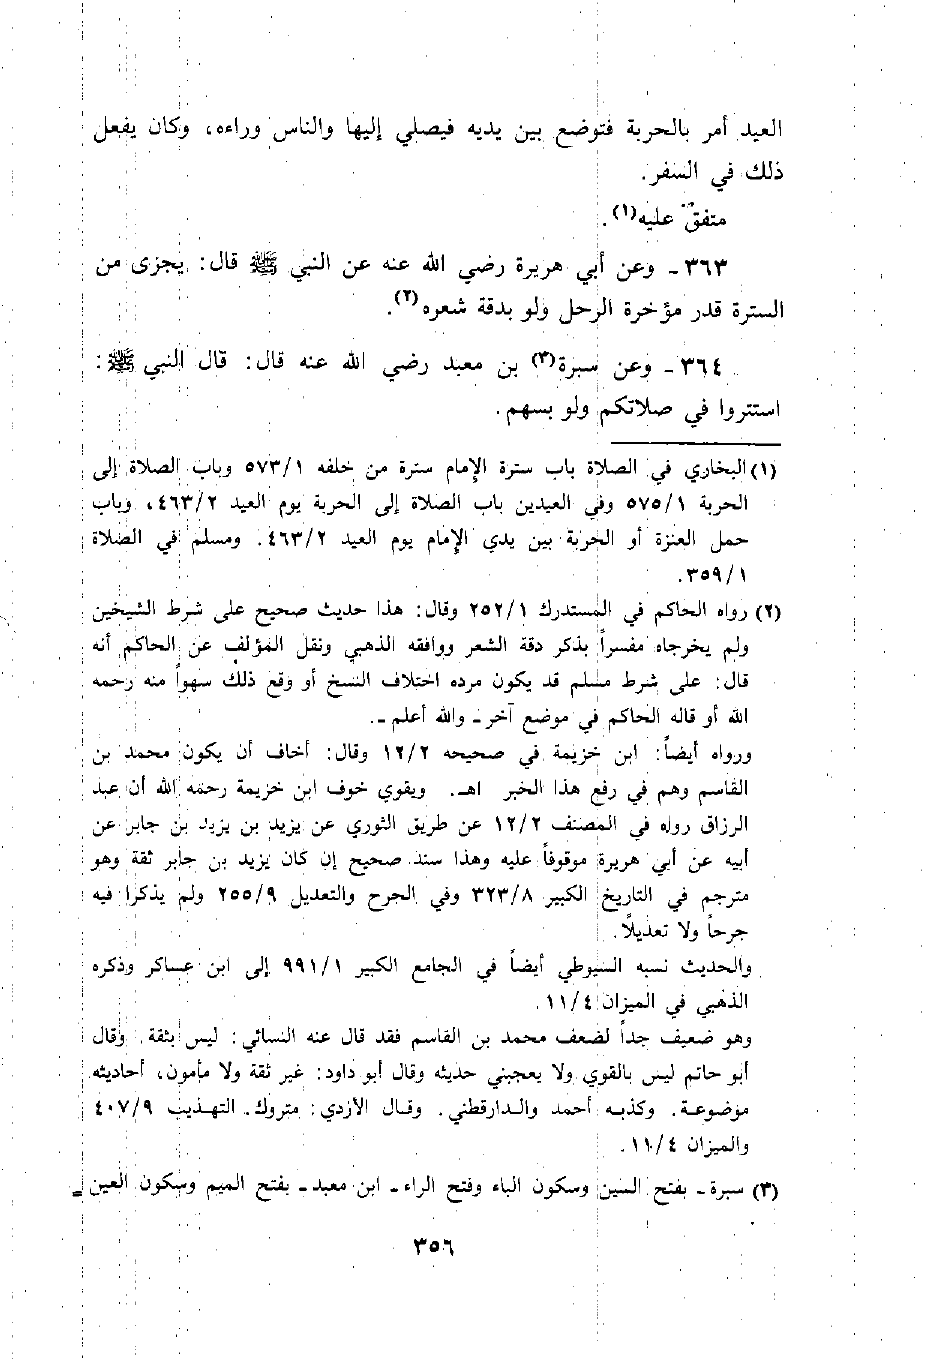 العيد أمر بالحربة فتوضع بين يديه فيصلي إليها والناس وراءه، وكان يفعل
ذلك في السفر.
متفق عليه(١).
٣٦٣ - وعن أبي هريرة رضي الله عنه عن النبي ﷺ قال: يجزى من
السترة قدر مؤخرة الرحل ولو بدقة شعره(٢).
٣٦٤ - وعن سبرة(٣) بن معبد رضي الله عنه قال: قال النبي ﷺ:
استتروا في صلاتكم ولو بسهم.
(١) البخاري في الصلاة باب سترة الإمام سترة من خلفه ٥٧٣/١ وباب الصلاة إلى
الحربة ٥٧٥/١ وفي العيدين باب الصلاة إلى الحربة يوم العيد ٤٦٣/٢، وباب
حمل العنزة أو الحربة بين يدي الإمام يوم العيد ٤٦٣/٢. ومسلم في الصلاة
٣٥٩/١.
(٢) رواه الحاكم في المستدرك ٢٥٢/١ وقال: هذا حديث صحيح على شرط الشيخين
ولم يخرجاه مفسراً بذكر دقة الشعر ووافقه الذهبي ونقل المؤلف عن الحاكم أنه
قال: على شرط مسلم قد يكون مرده اختلاف النسخ أو وقع ذلك سهواً منه رحمه
الله أو قاله الحاكم في موضع آخر - والله أعلم -.
ورواه أيضاً: ابن خزيمة في صحيحه ١٢/٢ وقال: أخاف أن يكون محمد بن
القاسم وهم في رفع هذا الخبر اهـ. ويقوي خوف ابن خزيمة رحمه الله أن عبد
الرزاق رواه في المصنف ١٢/٢ عن طريق الثوري عن يزيد بن يزيد بن جابر عن
أبيه عن أبي هريرة موقوفاً عليه وهذا سند صحيح إن كان يزيد بن جابر ثقة وهو
مترجم في التاريخ الكبير ٣٢٣/٨ وفي الجرح والتعديل ٢٥٥/٩ ولم يذكرا فيه
جرحاً ولا تعديلاً.
والحديث نسبه السيوطي أيضاً في الجامع الكبير ٩٩١/١ إلى ابن عساكر وذكره
الذهبي في الميزان ١١/٤.
وهو ضعيف جداً لضعف محمد بن القاسم فقد قال عنه النسائي: ليس بثقة. وقال
أبو حاتم ليس بالقوي ولا يعجبني حديثه وقال أبو داود: غير ثقة ولا مأمون، أحاديثه
موضوعة. وكذبه أحمد والدارقطني. وقال الأزدي: متروك. التهذيب ٤٠٧/٩
والميزان ١١/٤.
(٣) سبرة - بفتح السين وسكون الباء وفتح الراء - ابن معبد - بفتح الميم وسكون العين -
٣٥٦